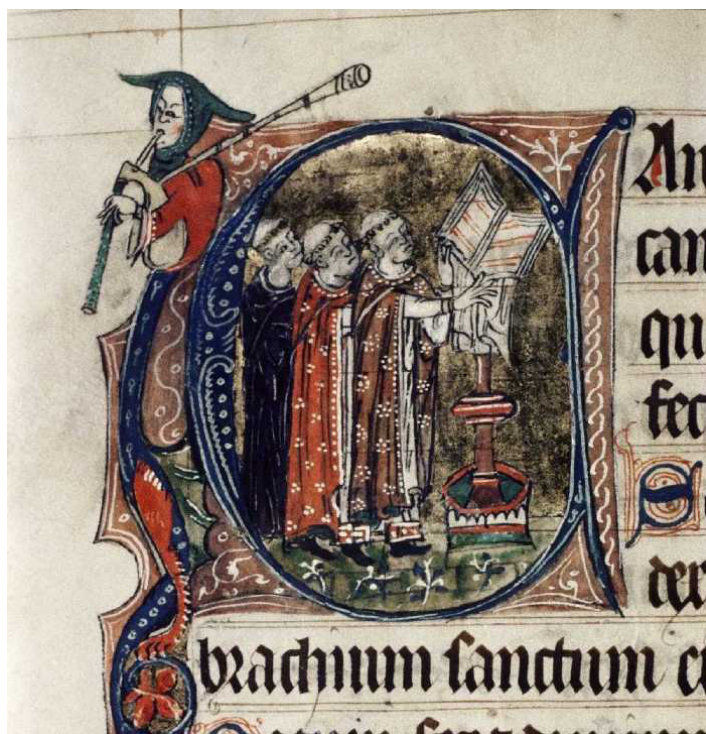 CAn
can
qui
fec
S
der
brachium sanctum e